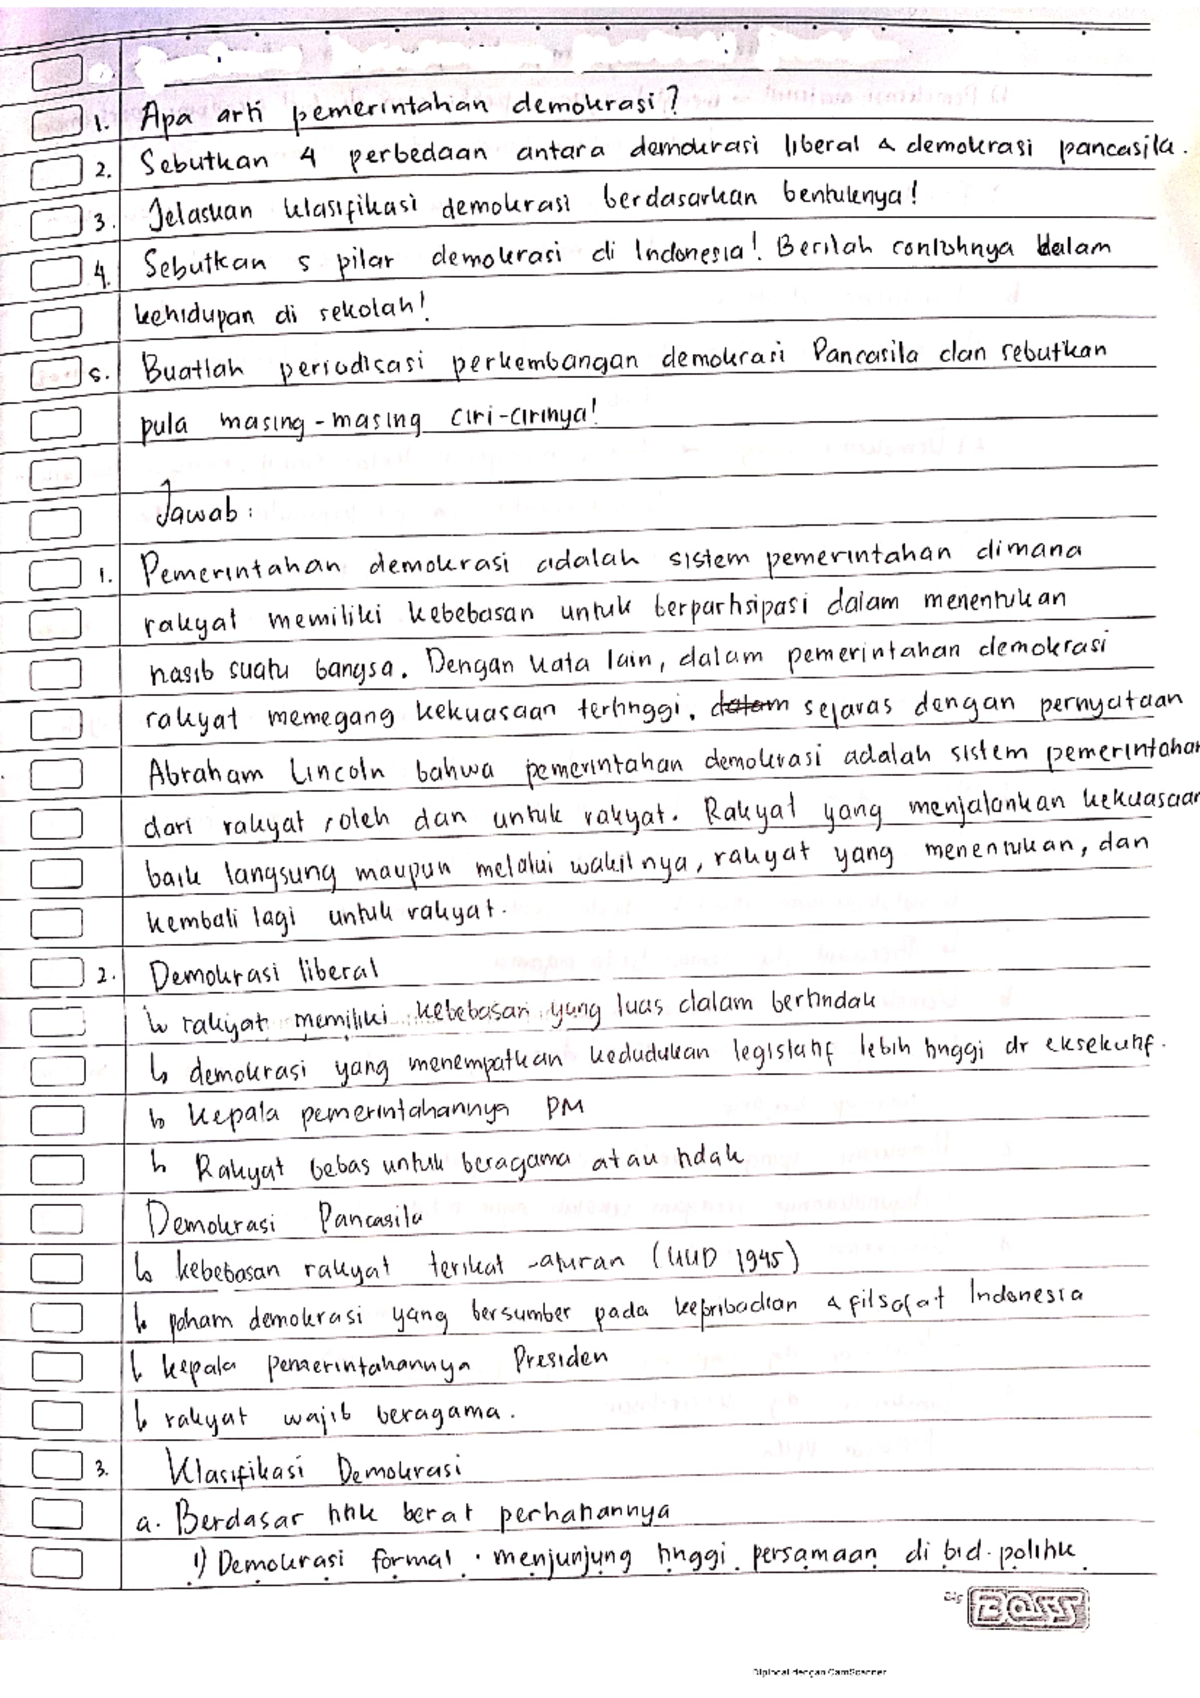 1. Apa arti pemerintahan demokrasi?
2. Sebutkan 4 perbedaan antara demokrasi liberal & demokrasi pancasila.
3. Jelaskan klasifikasi demokrasi berdasarkan bentuknya!
4. Sebutkan 5 pilar demokrasi di Indonesia! Berilah contohnya dalam
kehidupan di sekolah!
5. Buatlah periodisasi perkembangan demokrasi Pancasila dan sebutkan
pula masing-masing ciri-cirinya!
Jawab:
1. Pemerintahan demokrasi adalah sistem pemerintahan dimana
rakyat memiliki kebebasan untuk berpartisipasi dalam menentukan
nasib suatu bangsa. Dengan kata lain, dalam pemerintahan demokrasi
rakyat memegang kekuasaan tertinggi. dalam sejaras dengan pernyataan
Abraham Lincoln bahwa pemerintahan demokrasi adalah sistem pemerintahan
dari rakyat, oleh dan untuk rakyat. Rakyat yang menjalankan kekuasaan
baik langsung maupun melalui wakilnya, rakyat yang menentukan, dan
kembali lagi untuk rakyat.
2. Demokrasi liberal
↳ rakyat memiliki kebebasan yang luas dalam bertindak
↳ demokrasi yang menempatkan kedudukan legislatif lebih tinggi dr eksekutif.
↳ kepala pemerintahannya PM
↳ Rakyat bebas untuk beragama atau tidak
Demokrasi Pancasila
↳ kebebasan rakyat terikat -aturan (UUD 1945)
↳ paham demokrasi yang bersumber pada kepribadian & filsafat Indonesia
↳ kepala pemerintahannya Presiden
↳ rakyat wajib beragama.
3. Klasifikasi Demokrasi
a. Berdasar titik berat perhatiannya
1) Demokrasi formal · menjunjung tinggi persamaan di bid. politik
BOSS
Dipindai dengan CamScanner